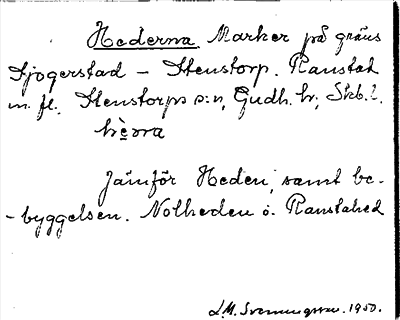 Hederna Marker på gräns
Sjogerstad – Stenstorp. Ranstad
m. fl. Stenstorps s:n, Gudh. hr; Skb. l.
Jämför Heden, samt be-
-byggelsen. Nolheden o. Ranstahed
1950.